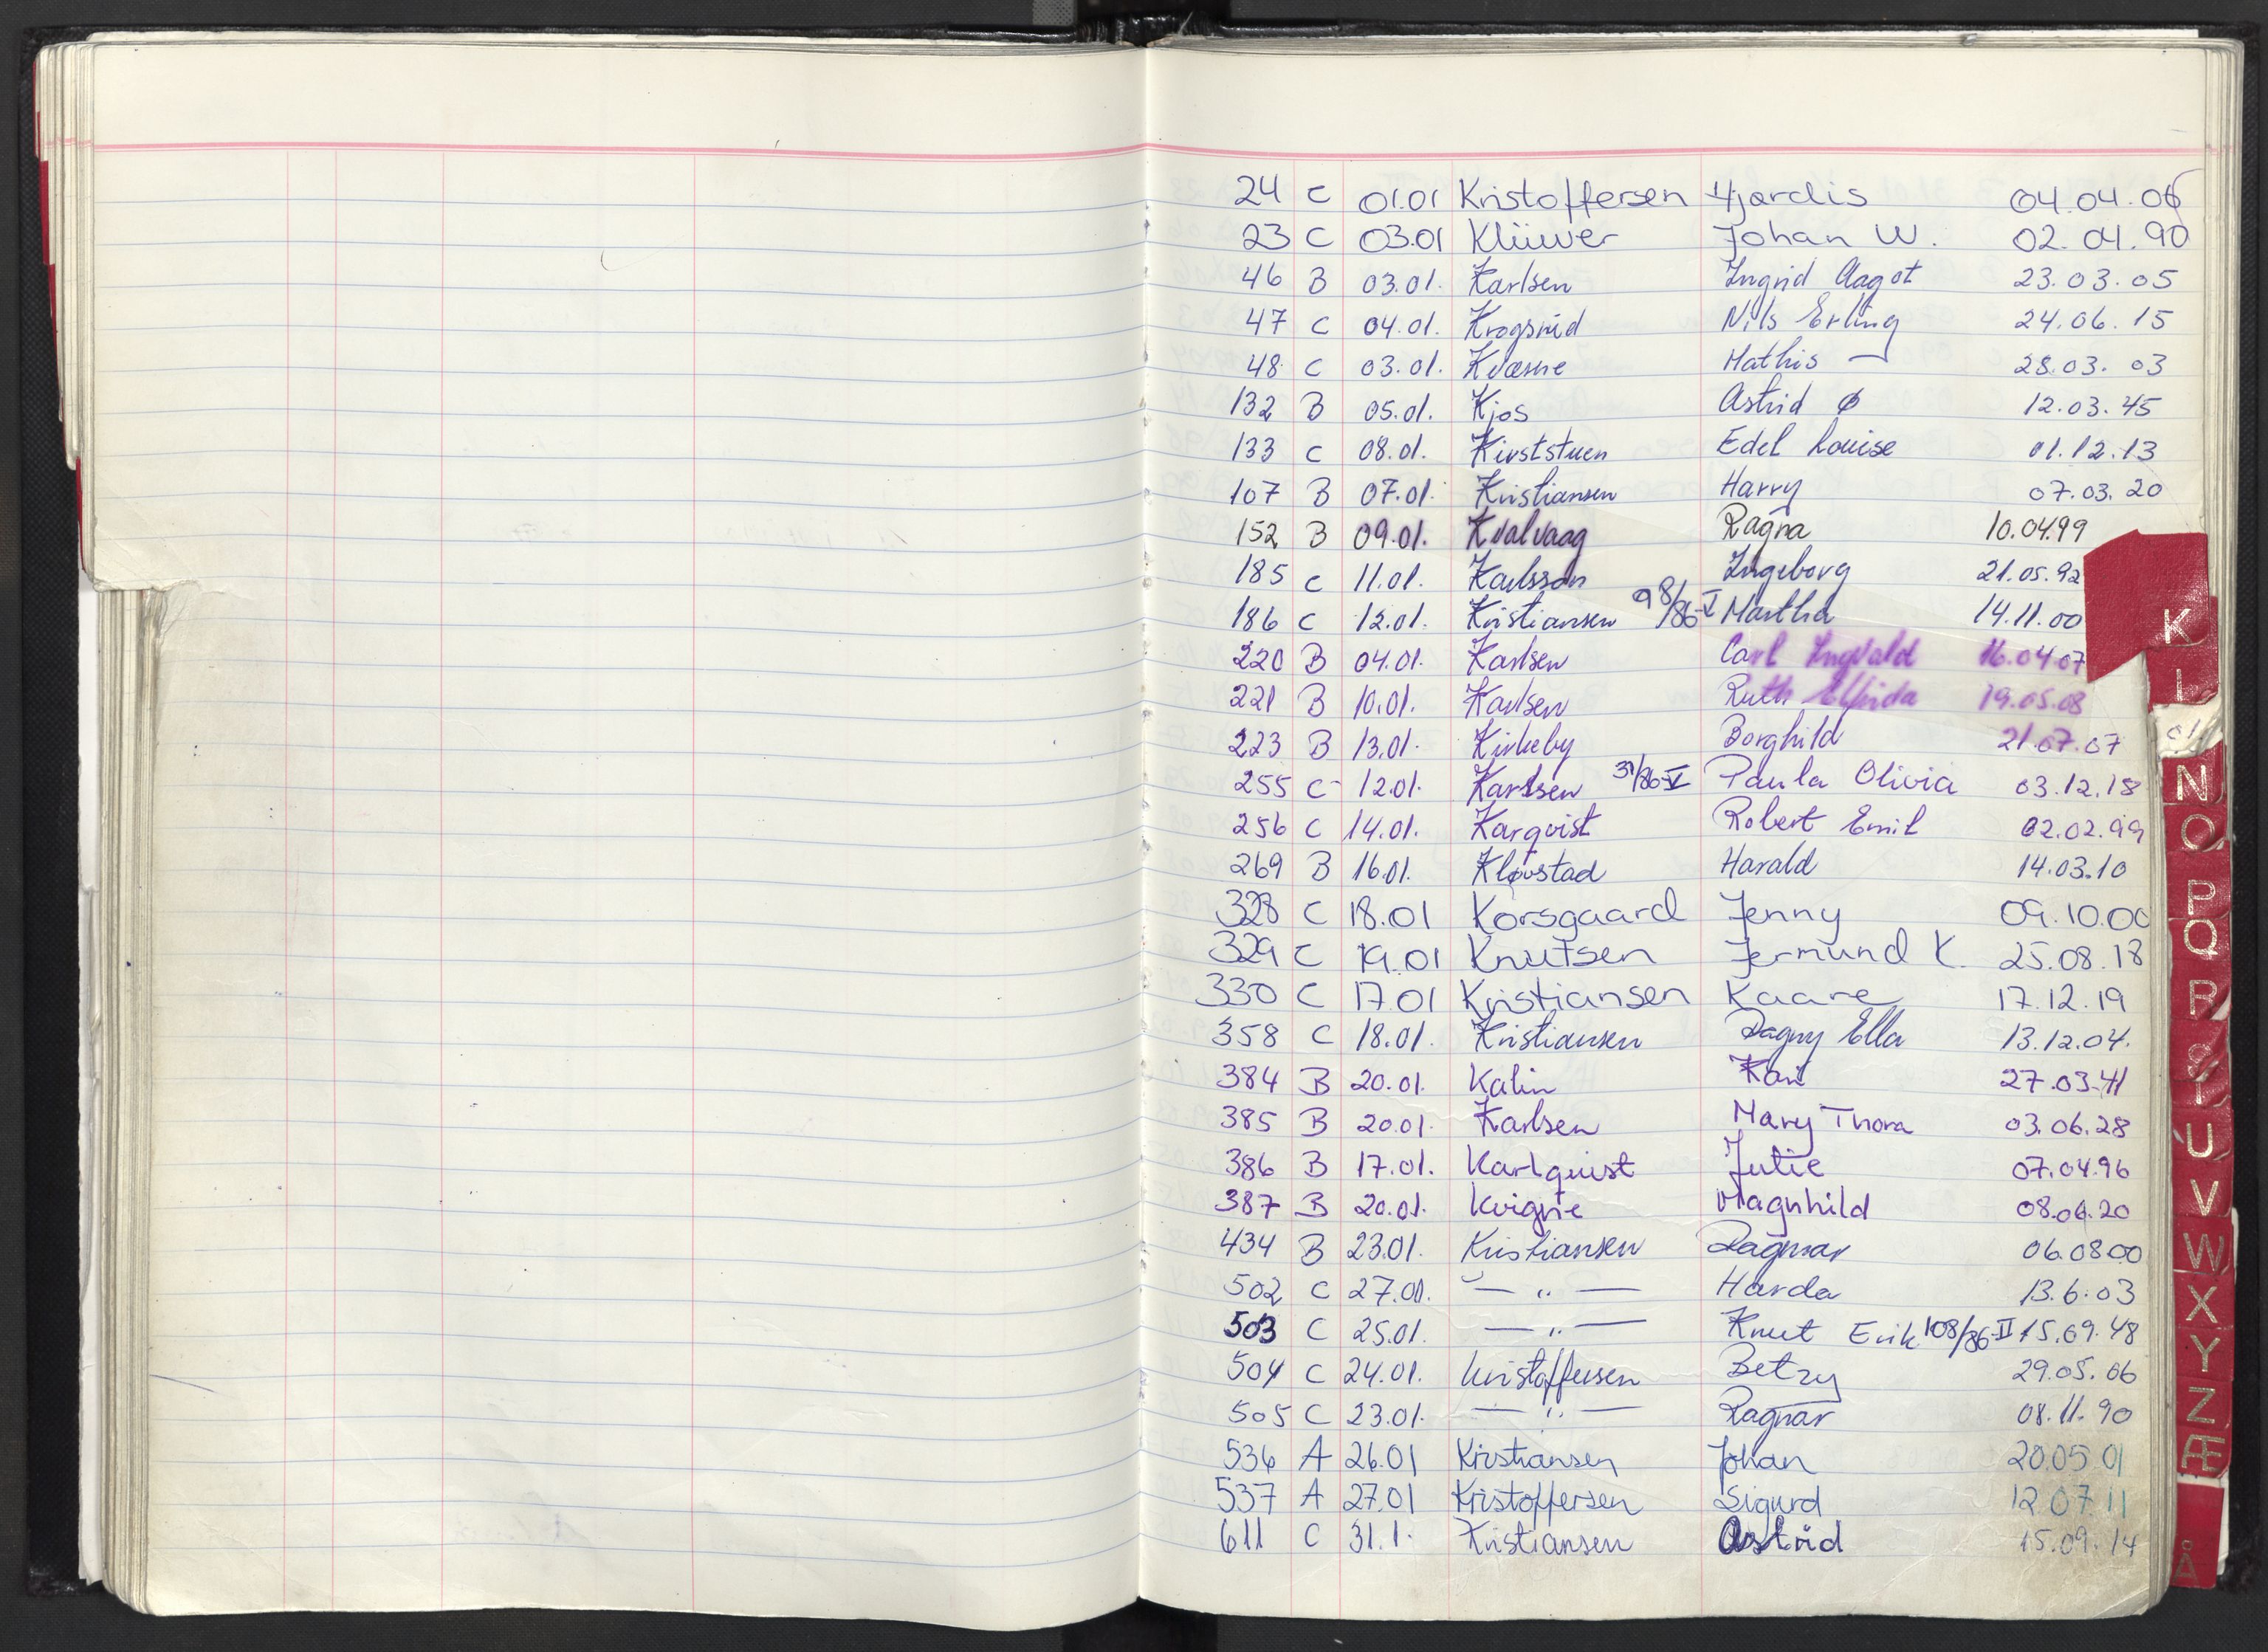 24 C 01.01 Kristoffersen Hjørdis 04.04.06
23 C 03.01 Klüwer Johan W. 02.04.90
46 B 03.01. Karlsen Ingrid Aagot 23.03.05
47 C 04.01. Krogsrud Nils Erling 24.06.15
48 C 03.01. Kværne Mathis 28.03.03
132 B 05.01. Kjos Astrid Ø 12.03.45
133 C 08.01. Edel Louise 01.12.13
107 B 07.01. Kristiansen Harry 07.03.20
152 B 09.01. Kvalvaag Ragna 10.04.99
185 C 11.01. Karlsson Ingeborg 21.05.92
186 C 12.01. Kristiansen 98/86-V Martha 14.11.00
220 B 04.01. Karlsen Carl Ingvald 16.04.07
221 B 10.01. Karlsen Ruth 19.05.08
223 B 13.01. Kirkeby Borghild 21.07.07
255 C 12.01. Karlsen 31/86-V Paula Olivia 03.12.18
256 C 14.01. Karqvist Robert Emil 02.02.99
269 B 16.01. Kløvstad Harald 14.03.10
328 C 18.01 Korsgaard Jenny 09.10.00
329 C 19.01 Knutsen Jermund K. 25.08.18
330 C 17.01 Kristiansen Kaare 17.12.19
358 C 18.01. Kristiansen Dagny Ella 13.12.04.
384 B 20.01. Kalin Kari 27.03.41
385 B 20.01. Karlsen Mary Thora 03.06.28
386 B 17.01. Karlquist Julie 07.04.96
387 B 20.01. Kvigne Magnhild 08.06.20
434 B 23.01. Kristiansen Dagmar 06.08.00
502 C 27.01. — " — Harda 13.6.03
503 C 25.01. — " — Knut Erik 108/86-II 15.09.48
504 C 24.01. Kristoffersen Betzy 29.05.06
505 C 23.01. — " — Ragnar 08.11.90
536 A 26.01 Kristiansen Johan 20.05.01
537 A 27.01 Kristoffersen Sigurd 12.07.11
611 C 31.1. Kristiansen Astrid 15.09.14
K
L
N
O
P
Q
R
U
V
W
X
Y
Z
Æ
Å